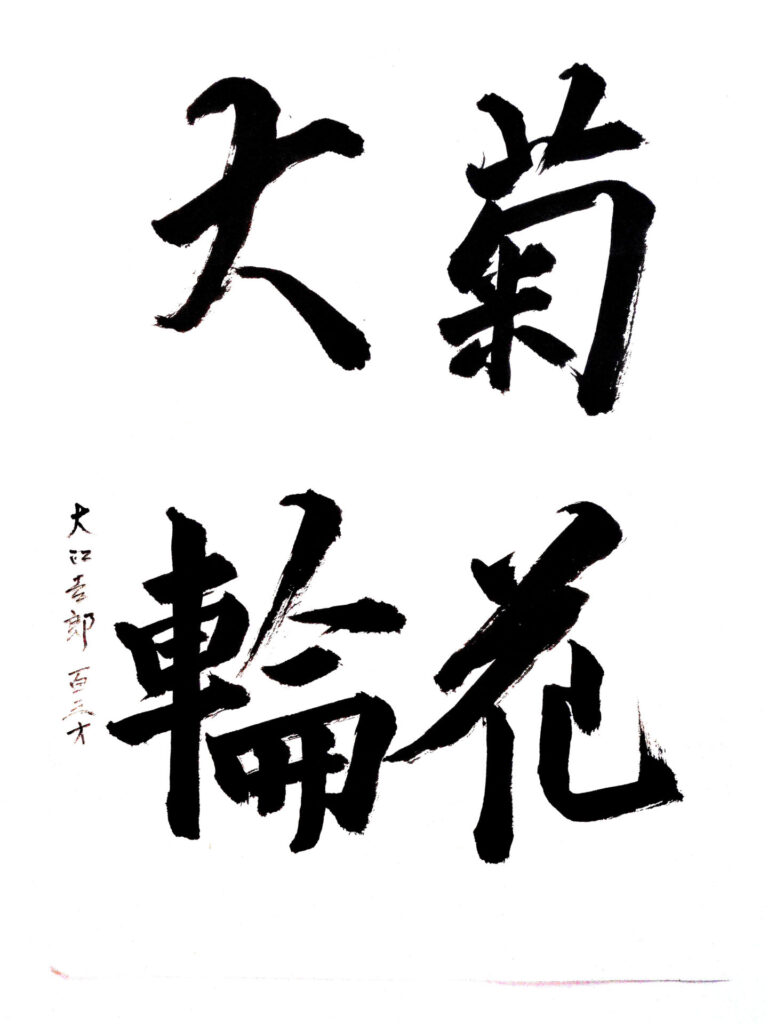 菊花
大輪
大江吾郎 百三才